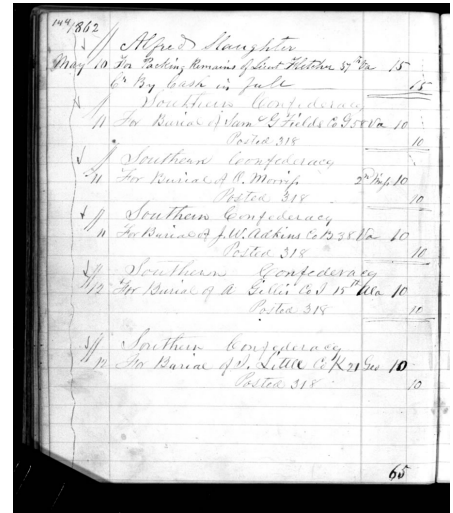 144 1862
Alfred Slaughter
May 10 For Packing Remains of Lieut Fletcher 57th Va 15
By Cash in full 15
Southern Confederacy
11 For Burial of Saml G Fields Co G 58 Va 10
Posted 318 10
Southern Confederacy
11 For Burial of R. Morris 2nd Miss 10
Posted 318 10
Southern Confederacy
11 For Burial of J. W. Adkins Co B 38 Va 10
Posted 318 10
Southern Confederacy
12 For Burial of A Gillis Co I 15th Ala 10
Posted 318 10
Southern Confederacy
12 For Burial of S. Little Co K 21 Geo 10
Posted 318 10
65